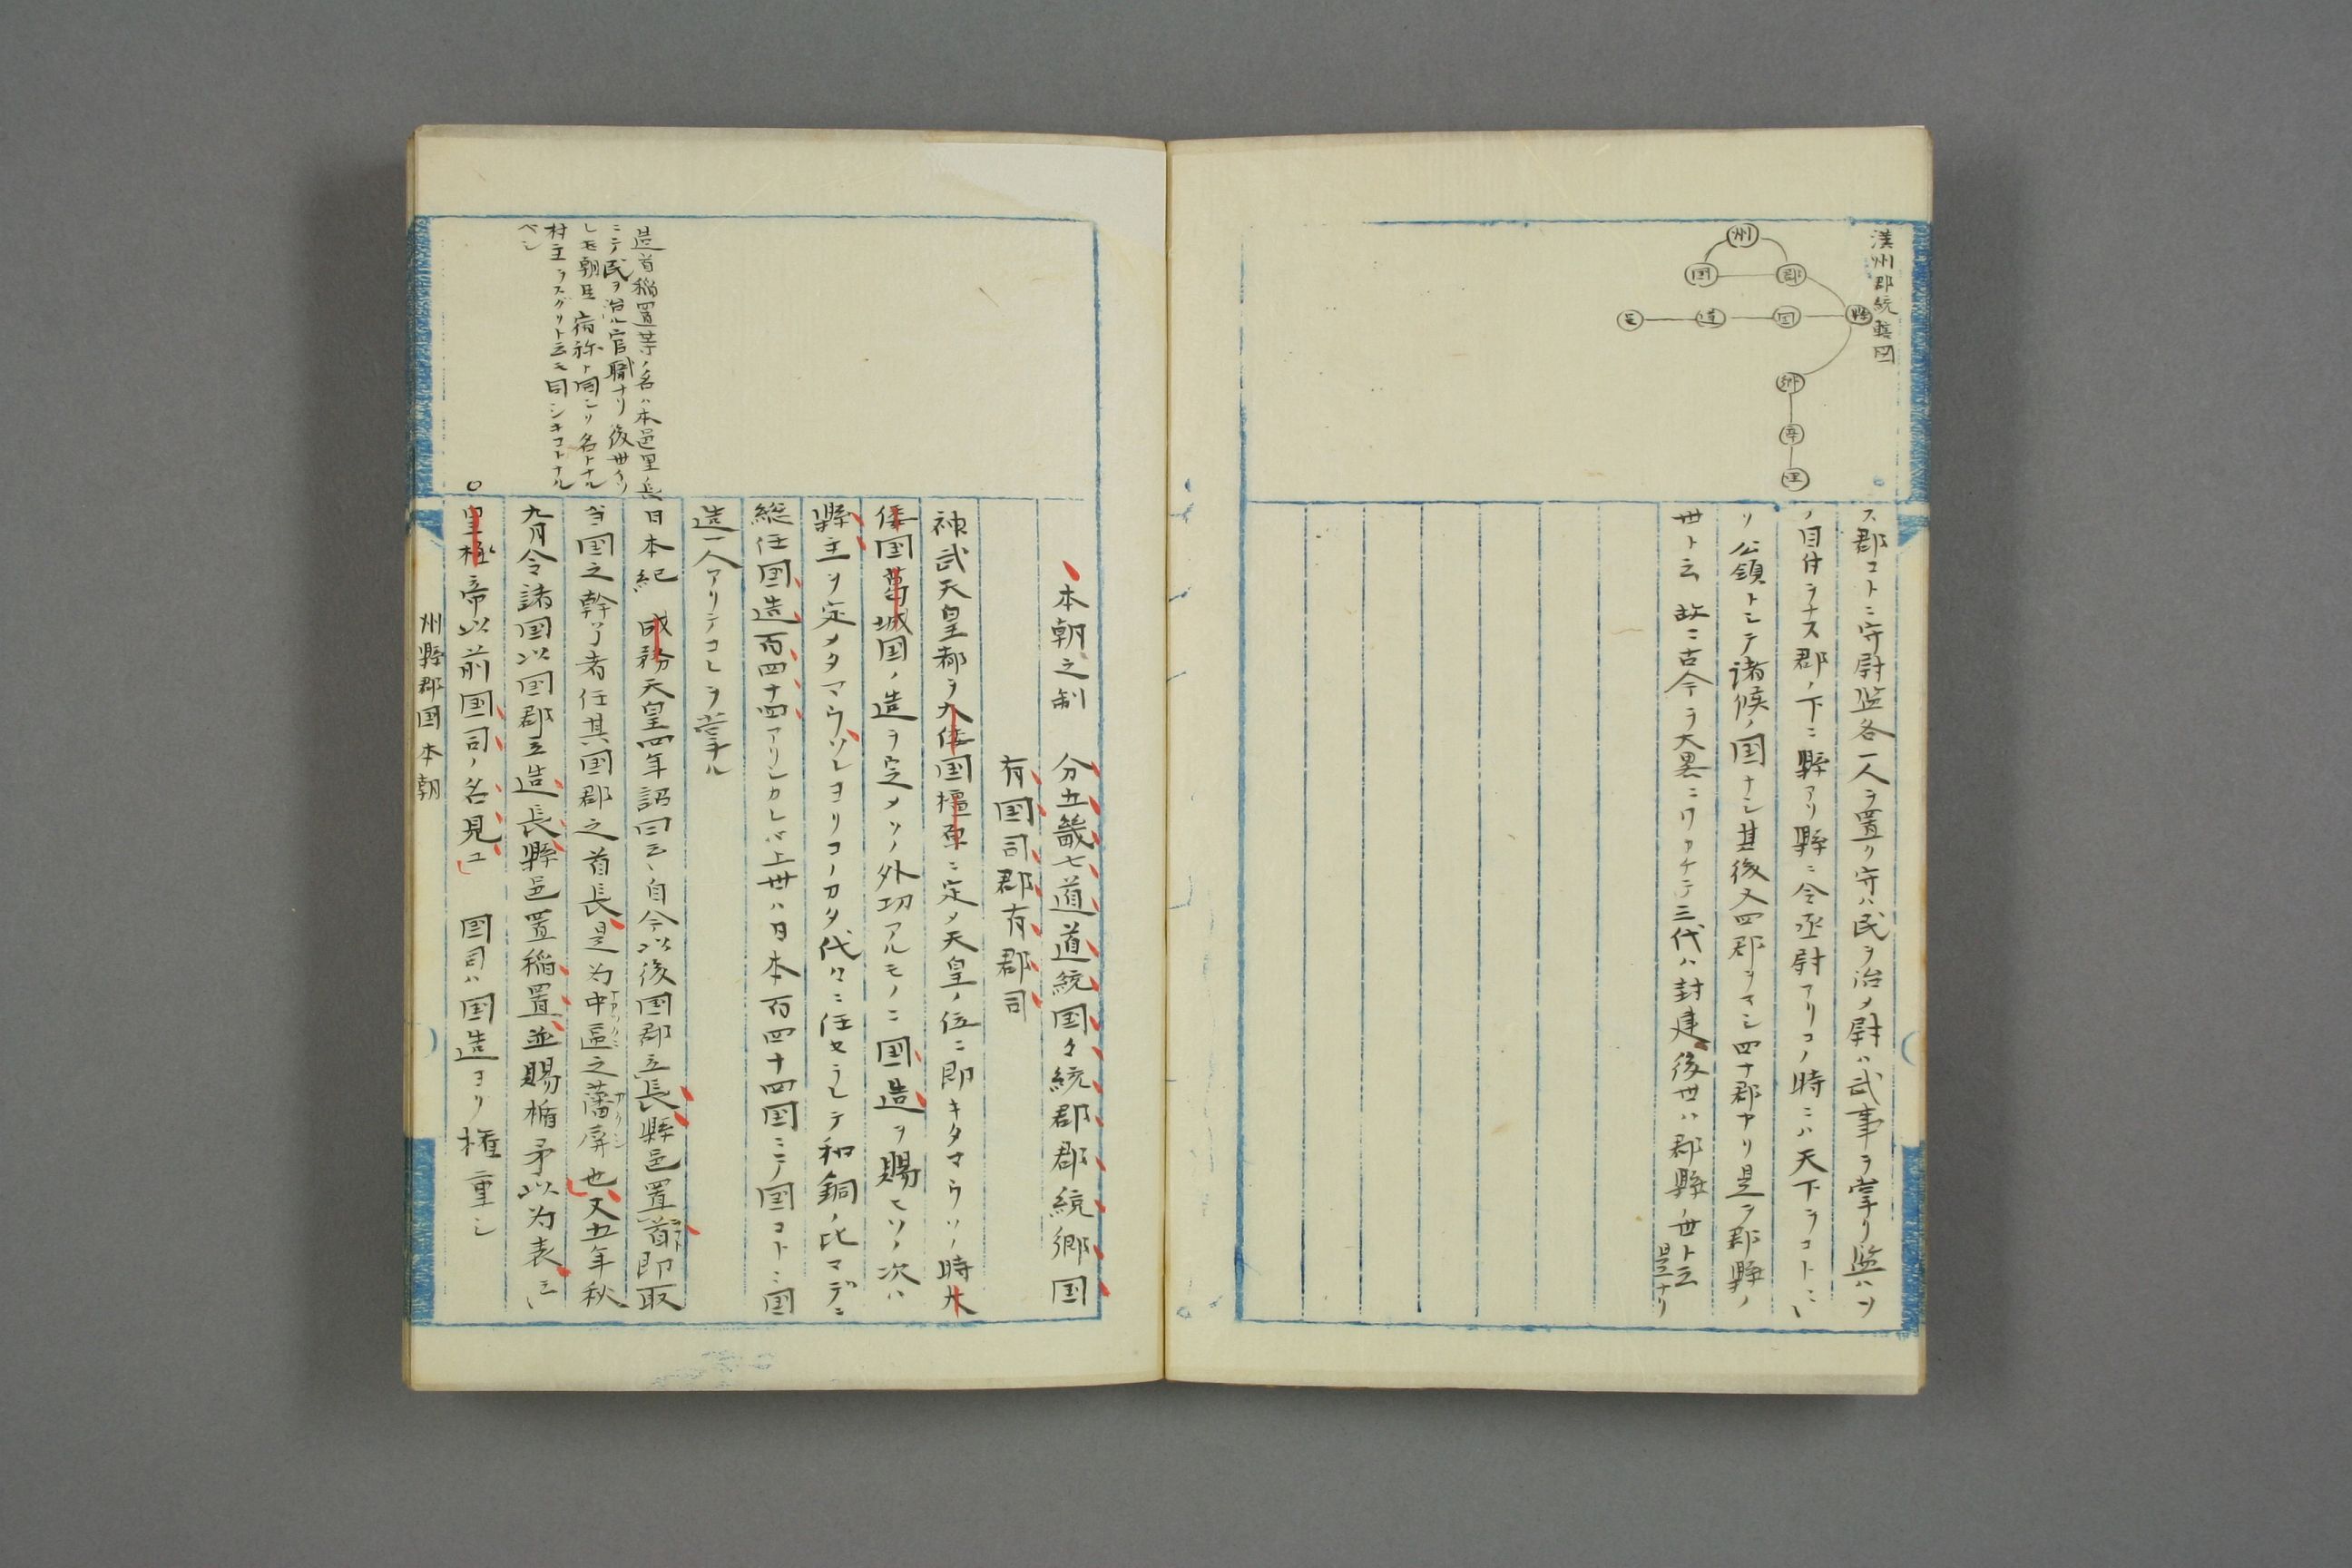 漢州郡統轄図
州
国
郡
縣
国
道
邑
郷
亭
里
ス郡コトニ守尉監各一人ヲ置リ守ハ民ヲ治メ尉ハ武事ヲ掌リ監ハソ
ノ目付ヲナス郡ノ下ニ縣アリ縣ニ令丞尉アリコノ時ニハ天下ヲコトニヽ
ソ公領トシテ諸候ノ国ナシ其後又四郡ヲマシ四十郡ナリ是ヲ郡縣ノ
世ト云 故ニ古今ヲ大畧ニワカチテ三代ハ封建後世ハ郡縣ノ世ト云
是ナリ
本朝之制 分五畿七道道統国々統郡郡統郷国
有国司郡有郡司
神武天皇都ヲ大倭国橿原ニ定メ天皇ノ位ニ即キタマウソノ時大
倭国葛城国ノ造ヲ定メソノ外功アルモノニ国造ヲ賜モソノ次ハ
縣主ヲ定メタマウソレヨリコノカタ代々ニ任セラレテ和銅ノ比マデニ
総任国造百四十四アリシカレバ上世ハ日本百四十四国ニテ国コトニ国
造一人アリテコレヲ掌ル
造首稲置等ノ名ハ本邑里ノ長
ニテ民ヲ治ル官職ナリ後世ヨリ
レモ朝臣宿祢ト同シク名トナル
村主ヲスグリト云モ同シキコトナル
ベシ
日本紀 成務天皇四年詔曰云々自今以後国郡立長縣邑置首即取
当国之幹了者任其国郡之首長是为中區之藩屏也又五年秋
九月令諸国以国郡立造長縣邑置稲置並賜楯矛以为表云々
○皇極帝以前国司ノ名見ユ 国司ハ国造ヨリ権重シ
州縣郡国本朝